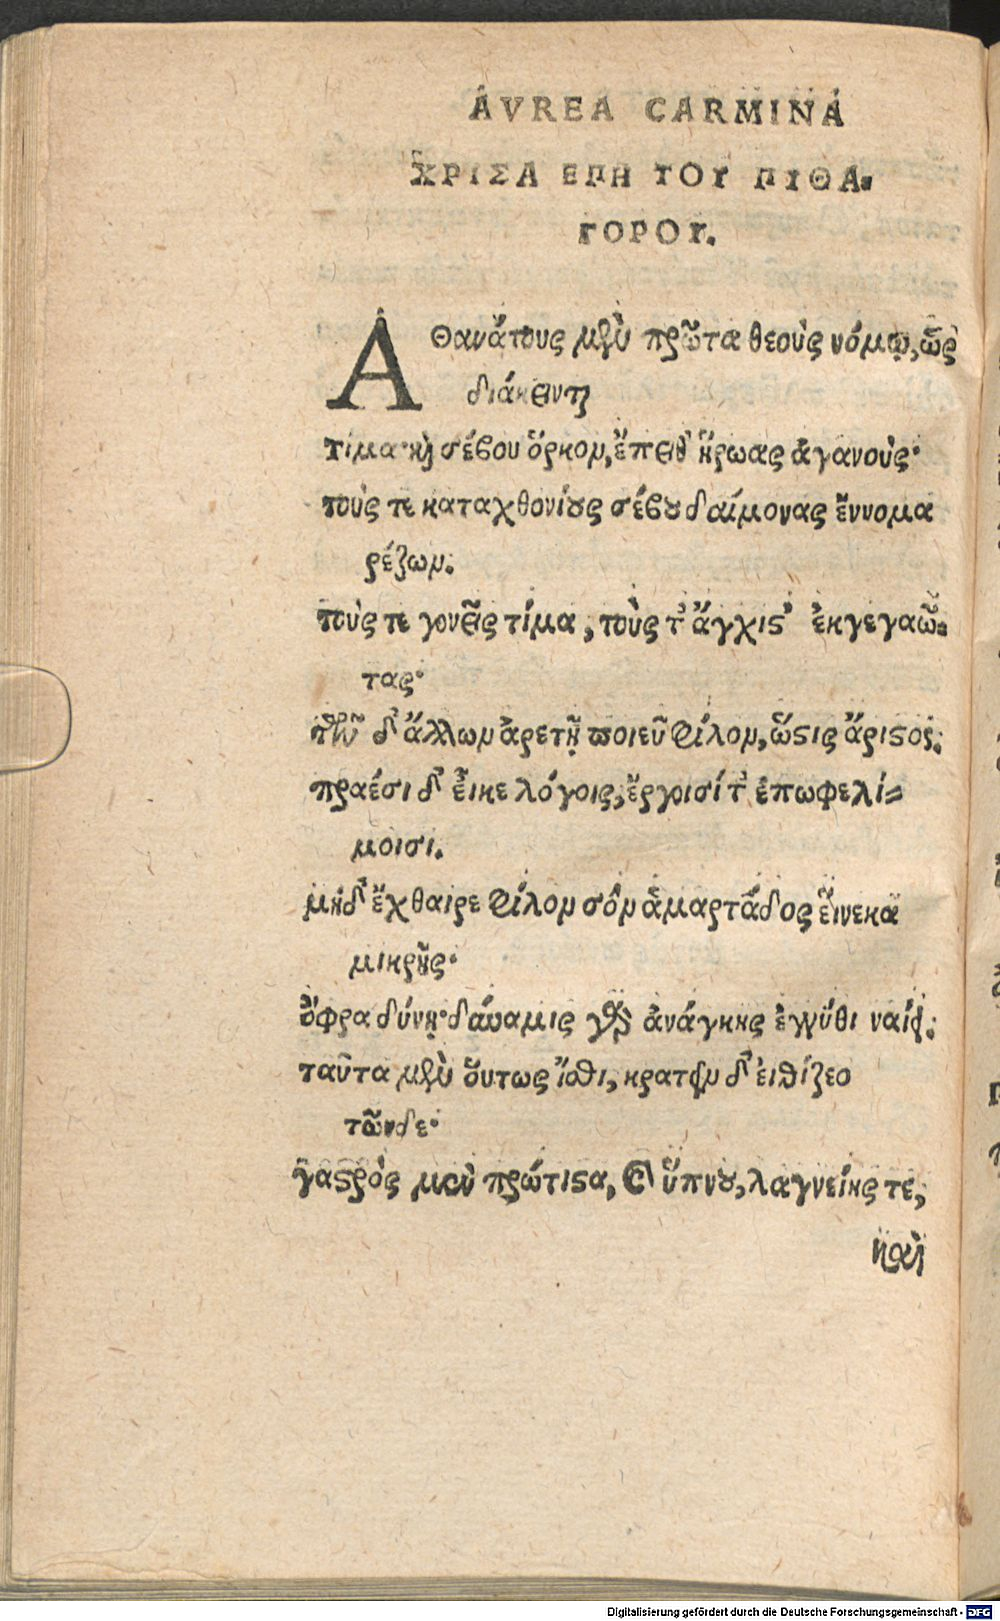 AVREA CARMINA
ΧΡΙΣΑ ΕΠΗ ΤΟΥ ΠΙΘΑ-
ΓΟΡΟΥ.
Αθανάτους μὲν πρῶτα θεοὺς νόμῳ, ὡς
διάκεινται
τίμα· καὶ σέβου ὅρκον, ἔπειθ' ἥρωας ἀγανούς·
τούς τε καταχθονίους σέβου δαίμονας ἔννομα
ρέζων.
τούς τε γονεῖς τίμα, τούς τ' ἄγχιστ' ἐκγεγαῶ-
τας·
τῶν δ' ἄλλων ἀρετῇ ποιεῦ φίλον, ὥστις ἄριστος.
πραέσι δ' εἶκε λόγοις, ἔργοισί τ' ἐπωφελί-
μοισι.
μηδ' ἔχθαιρε φίλον σὸν ἁμαρτάδος εἵνεκα
μικρῆς·
ὄφρα δύνῃ· δύναμις γὰρ ἀνάγκης ἐγγύθι ναίει.
ταῦτα μὲν οὕτως ἴσθι, κρατεῖν δ' εἰθίζεο
τῶνδε·
γαστρὸς μὲν πρώτιστα, καὶ ὕπνου, λαγνείης τε,
καὶ
Digitalisierung gefördert durch die Deutsche Forschungsgemeinschaft - DFG